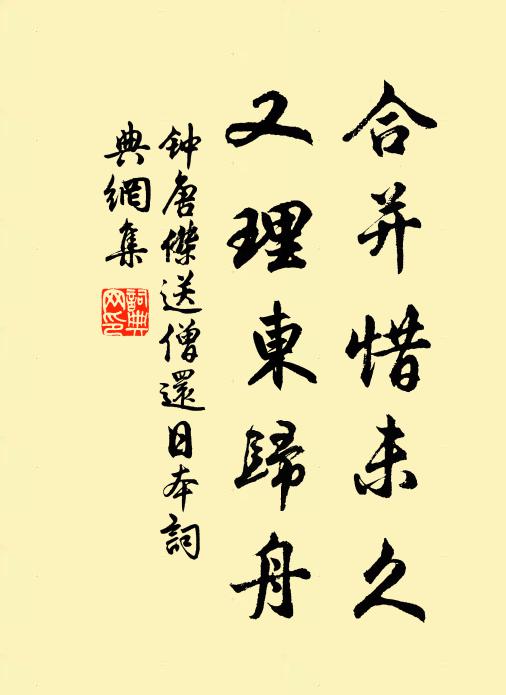 合并惜未久
又理東歸舟
钟唐傑送僧還日本詞
典網集
詞典
网印